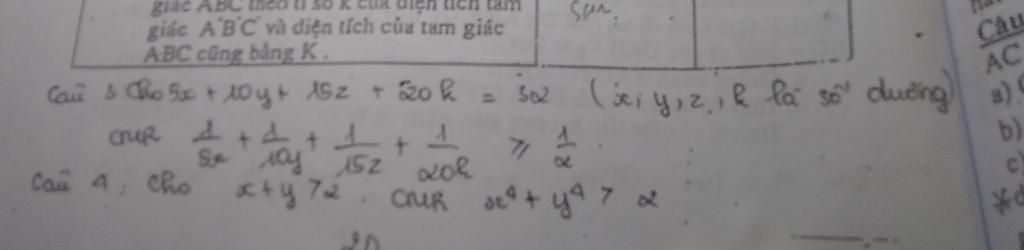 giác ABC theo tỉ số k của diện tích tam
giác A'B'C' và diện tích của tam giác
ABC cũng bằng K .
Sai.
Câu
AC
a)
b)
c)
Câu 5 Cho 5x + 10y + 15z + 20k = 32 (x, y, z, k là số dương)
CMR 1/5x + 1/10y + 1/15z + 1/20k ≥ 1/2
Câu 4 : Cho x + y > 2 . CMR x⁴ + y⁴ > 2